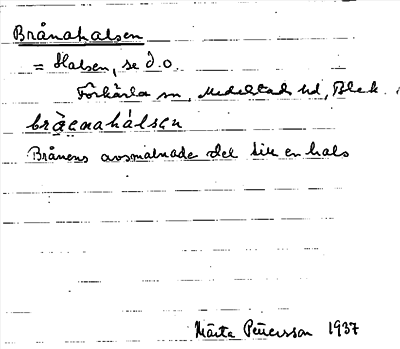 Brånahalsen
= Halsen, se d.o.
Förkärla sn, Medelstads hd, Blek.
Brånens avsmalnade del till en hals
Märta Petersson 1937